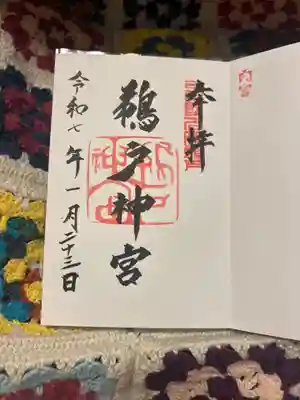 奉拝
鵜戸神宮
令和七年一月二十三日